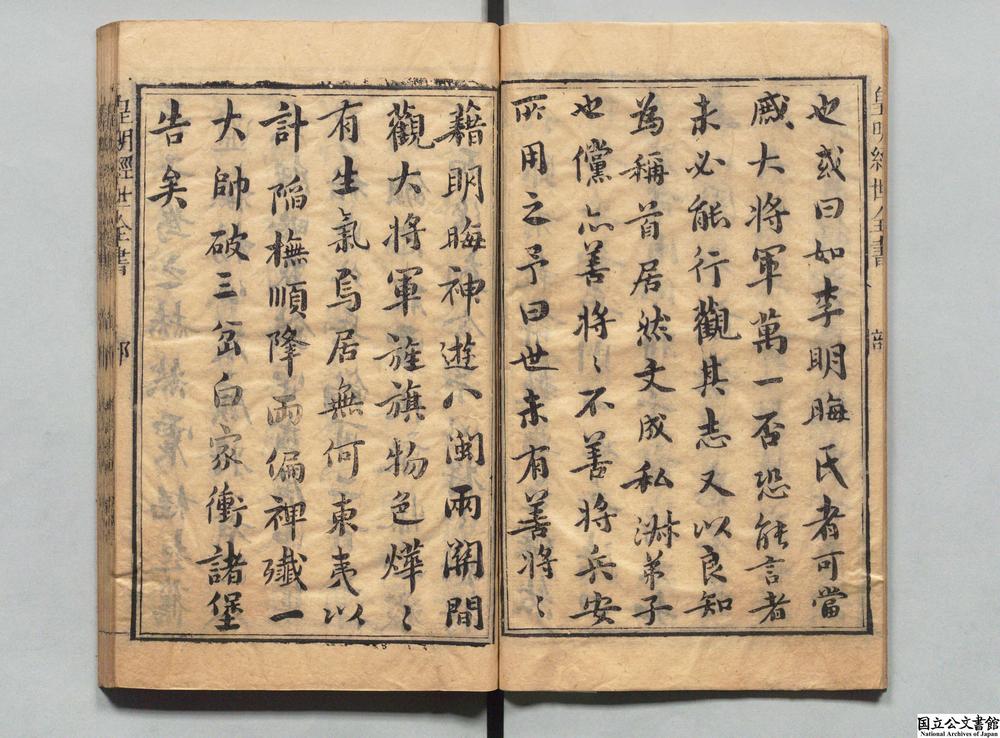 也或曰如李明晦氏者可當
戚大將軍萬一否恐能言者
未必能行觀其志又以良知
為稱首居然文成私淋弟子
也儻亦善將〻不善將兵安
所用之予曰世未有善將〻
藉明晦神遊八閩兩關間
觀大將軍旌旗物色燁〻
有生氣焉居無何東夷以
計陷撫順降两偏裨殲一
大帥破三岔白家衝諸堡
告矣
皇明經世全書
皇明經世全書
国立公文書館
National Archives of Japan